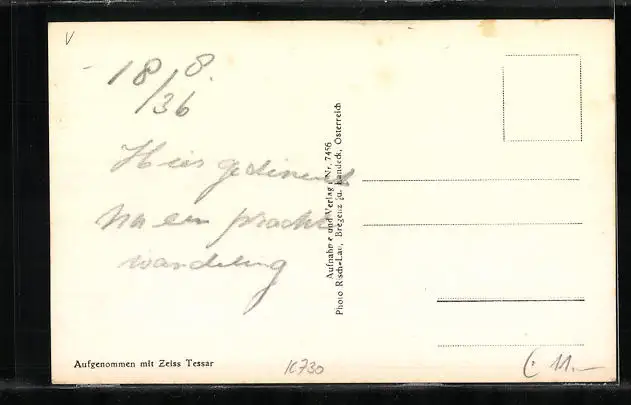 V
18/8.
/36
Hier gedineerd
na een pracht
wandeling
Aufnahme und Verlag Nr. 7456
Photo Risch-Lau, Bregenz u. Landeck, Österreich
Aufgenommen mit Zeiss Tessar
K730
11.—